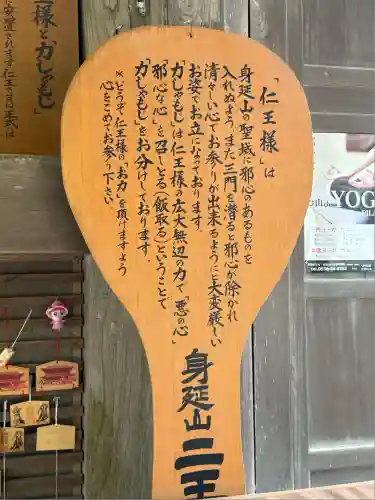 「仁王様」は
身延山の聖域に邪心のあるものを
入れぬよう また三門を潜ると邪心が除かれ
清々しい心でお参りが出来るようにと大変厳しい
お姿でお立になっております。
「力しゃもじ」は仁王様の広大無辺の力で「悪の心」
「邪心な心」を召しとる(飯取る)ということで
「力しゃもじ」をお分けしております。
※どうぞ仁王様のお力を頂けますよう
心をこめてお参り下さい
身延山
二王
王様と
「力しゃもじ」
YOG